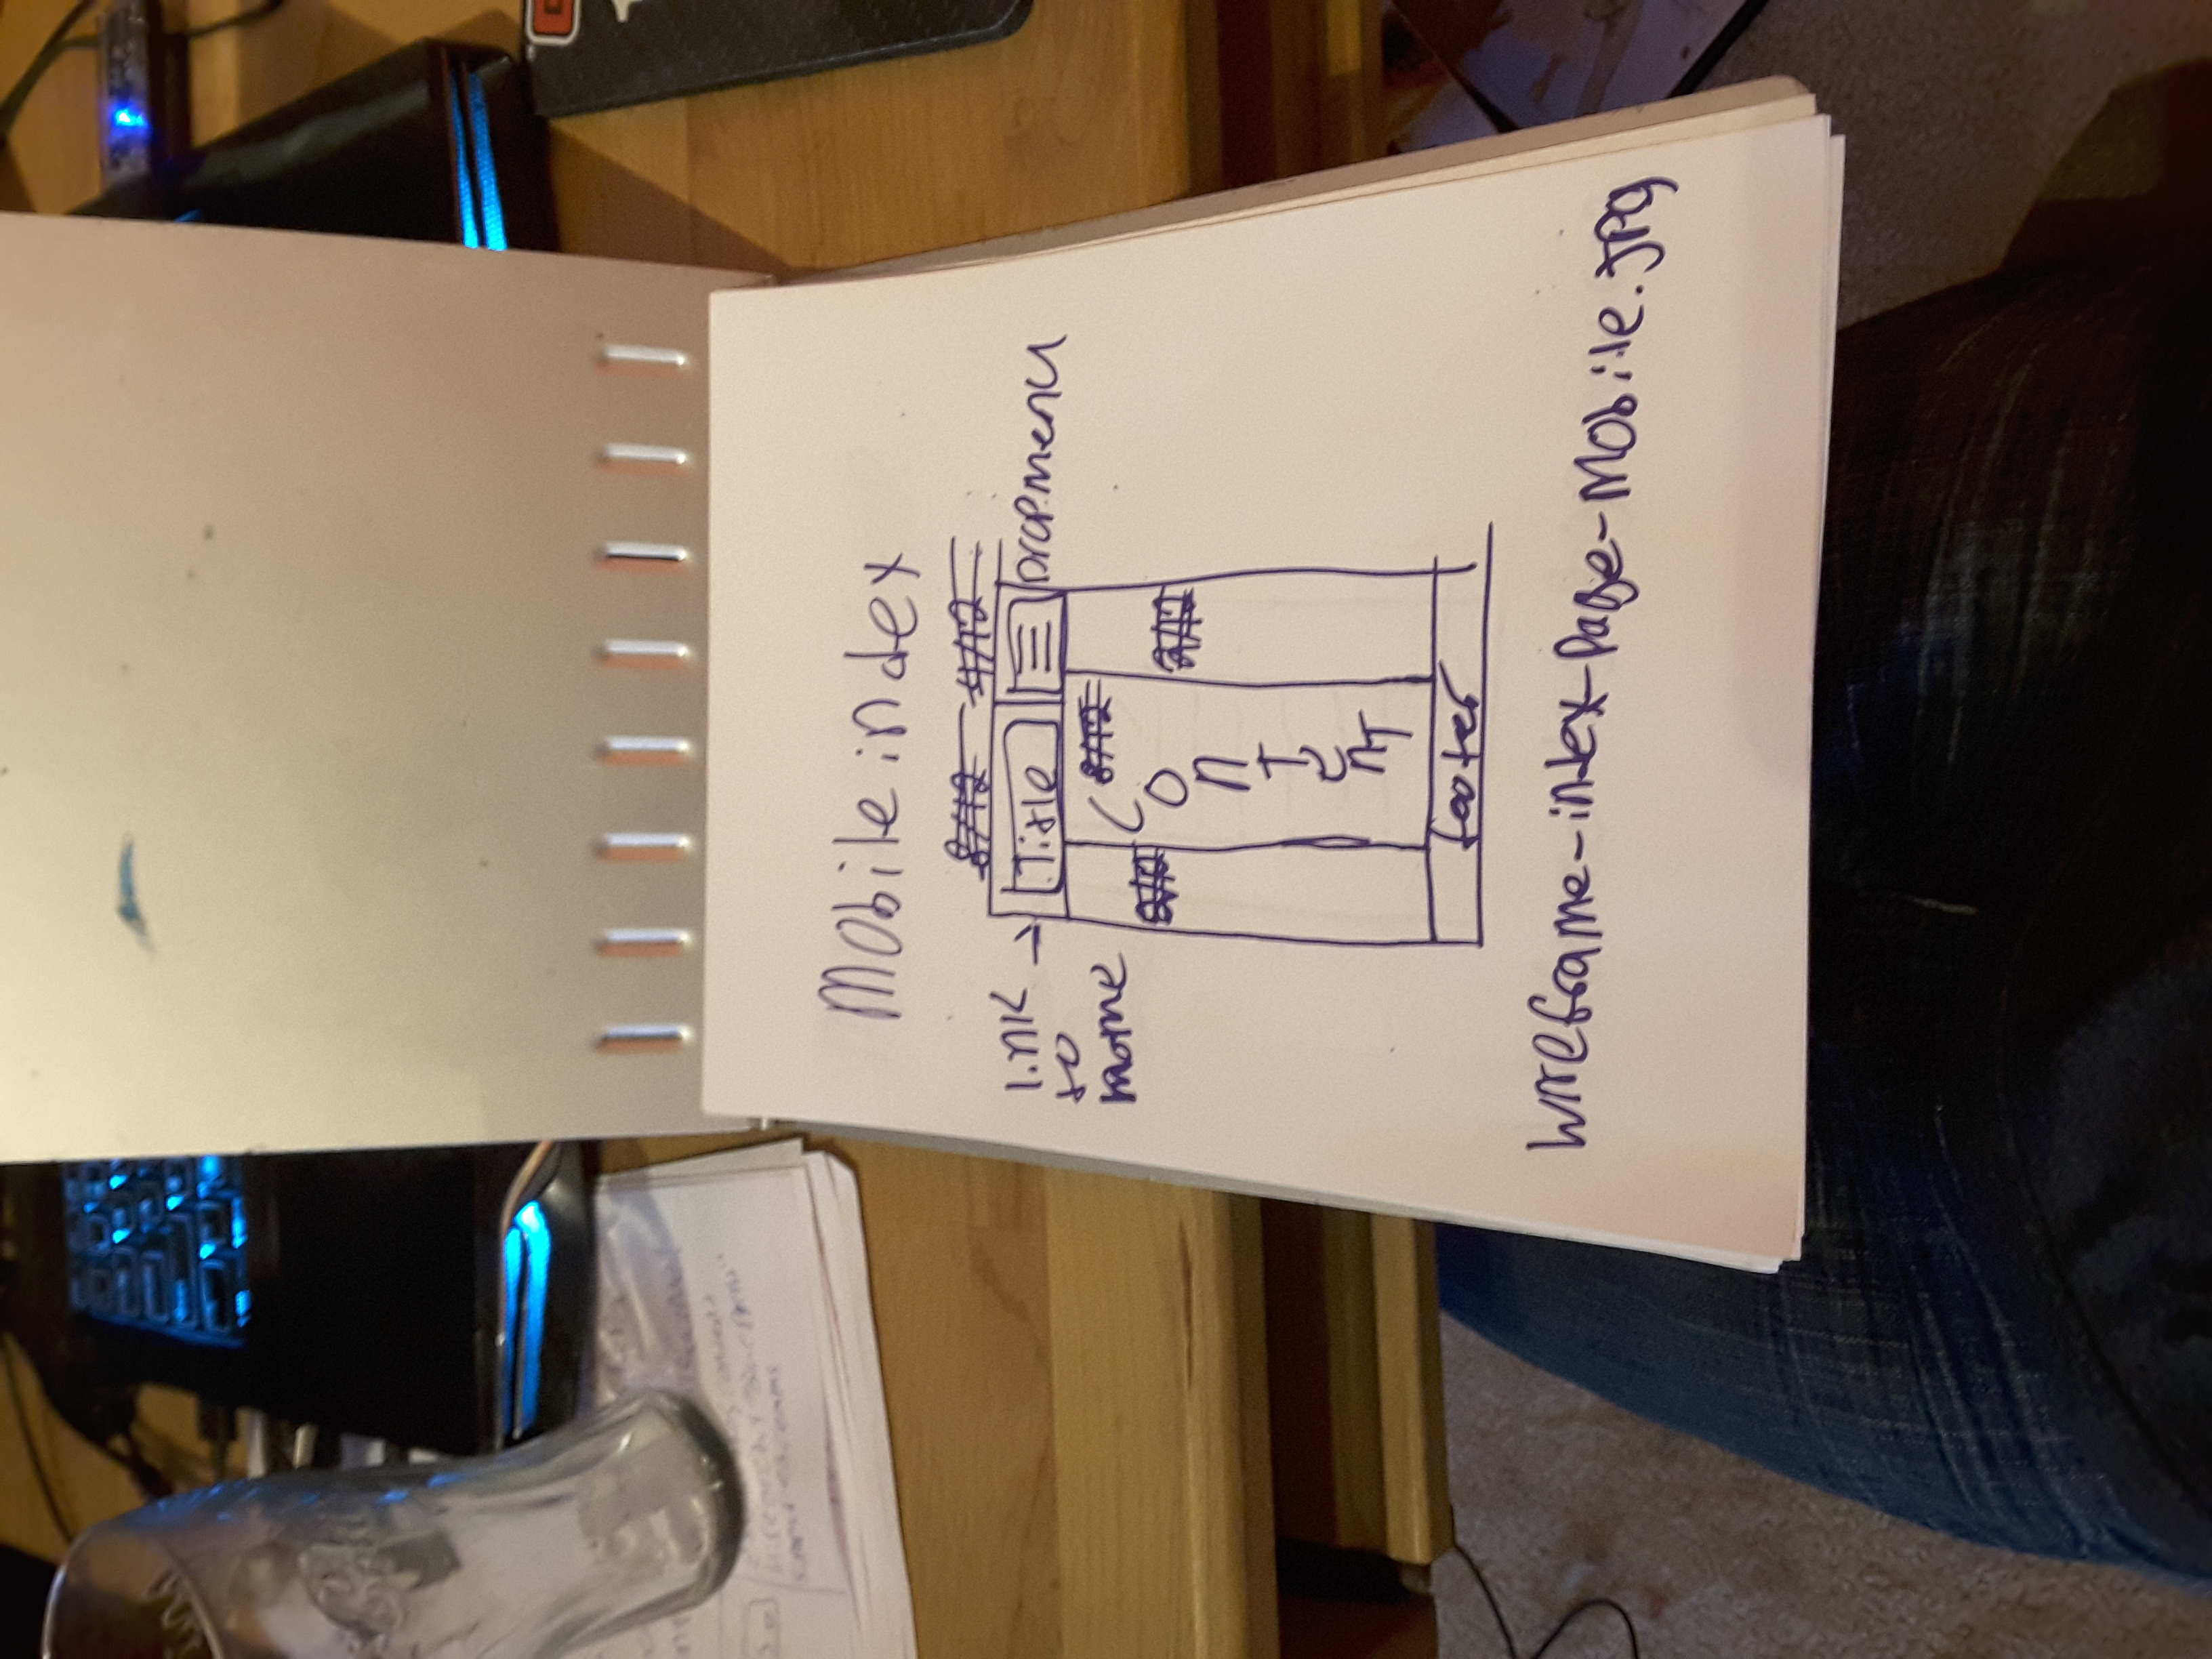 Mobile index
8/12 4/12
Link to home
Title
Dropmenu
8/12
2/12
2/12
CONTENT
footer
Wireframe-index-Page-Mobile.jpg